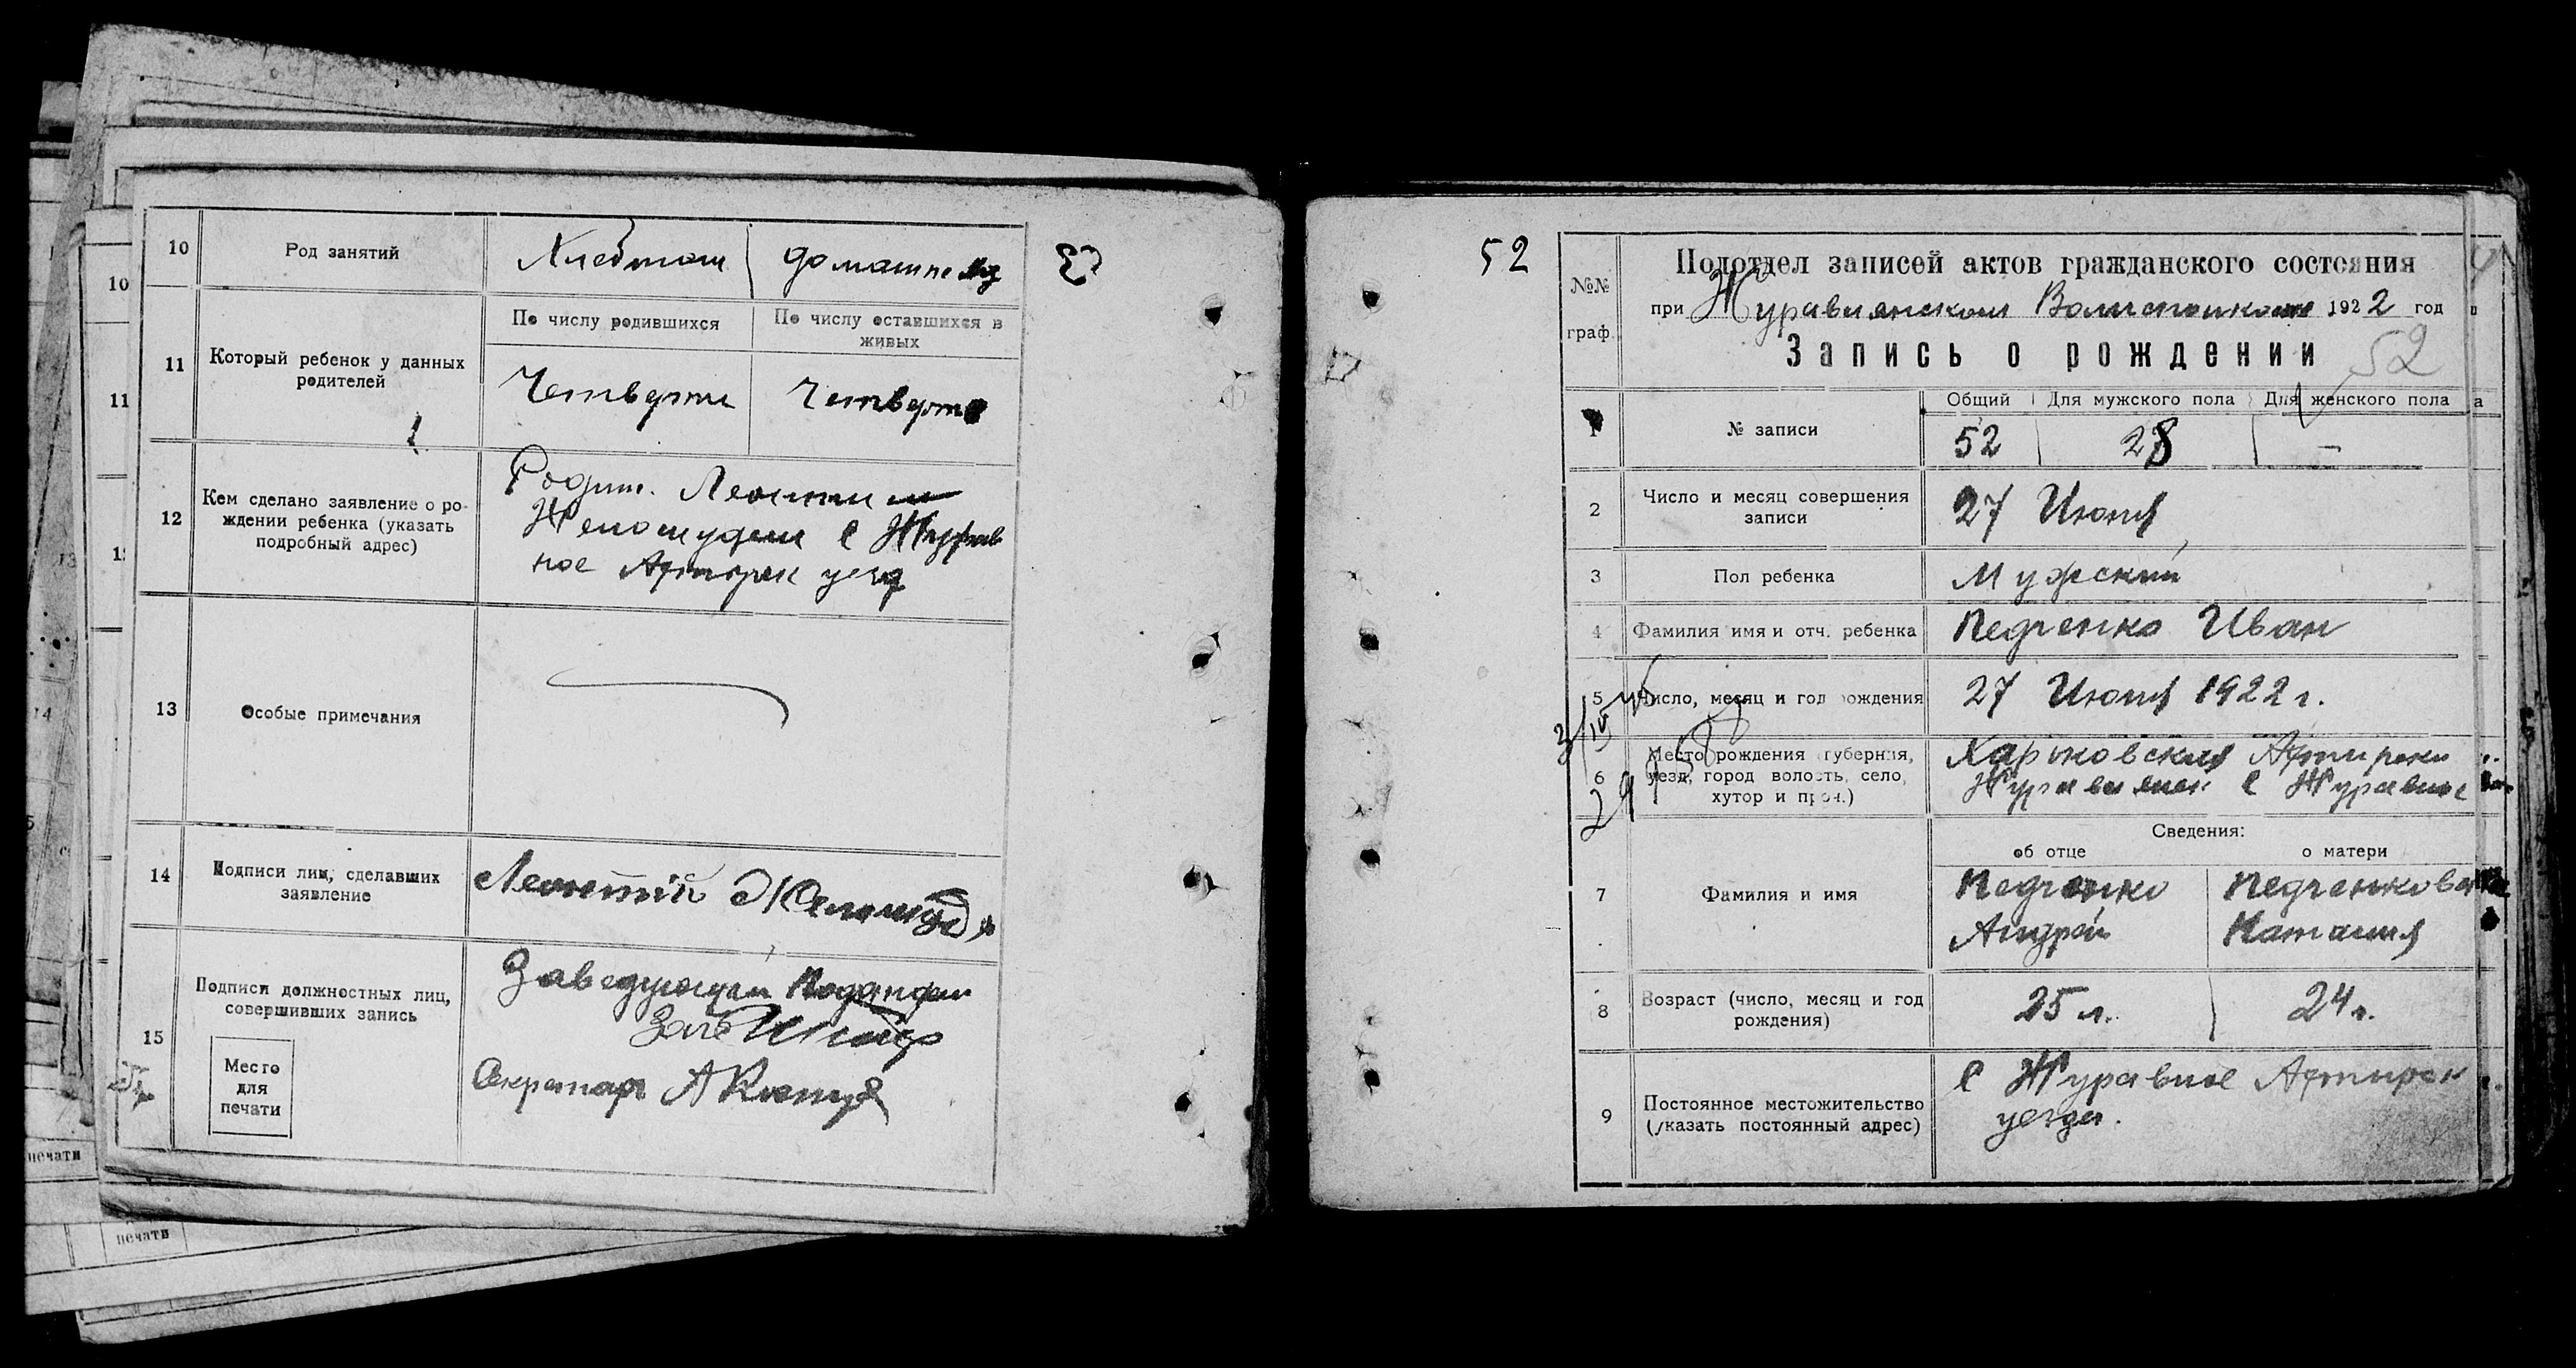 10
Род занятий
Хлебопаш
домашне
11
Который ребенок у данных
родителей
По числу родившихся
По числу оставшихся в
живых
Четверти
Четверт
12
Кем сделано заявление о ро-
ждении ребенка (указать
подробный адрес)
Родит. Леонтий
с Журав
ное Ахтырск уезд
13
Особые примечания
14
Подписи лиц, сделавших
заявление
Леонтій
15
Подписи должностных лиц,
совершивших запись
Место
для
печати
Заведующий Подотдел
Секретарь
10
11
печати
печати
52
№№
граф.
Подотдел записей актов гражданского состояния
при Журавлянском Волисполкоме 1922 год
Запись о рождении
52
1
№ записи
Общий
Для мужского пола
Для женского пола
52
28
—
2
Число и месяц совершения
записи
27 Июня
3
Пол ребенка
Мужский
4
Фамилия имя и отч. ребенка
Педченко Иван
5
Число, месяц и год рождения
27 Июня 1922 г.
6
Место рождения (губерния,
уезд, город волость, село,
хутор и проч.)
Харьковская Ахтырски
Журавлянск с Журавное
7
Фамилия и имя
Сведения:
об отце
о матери
Педченко
Андрей
Педченкова
Наталия
8
Возраст (число, месяц и год
рождения)
25 л.
24 г.
9
Постоянное местожительство
(указать постоянный адрес)
с Журавное Ахтырск
уезда.